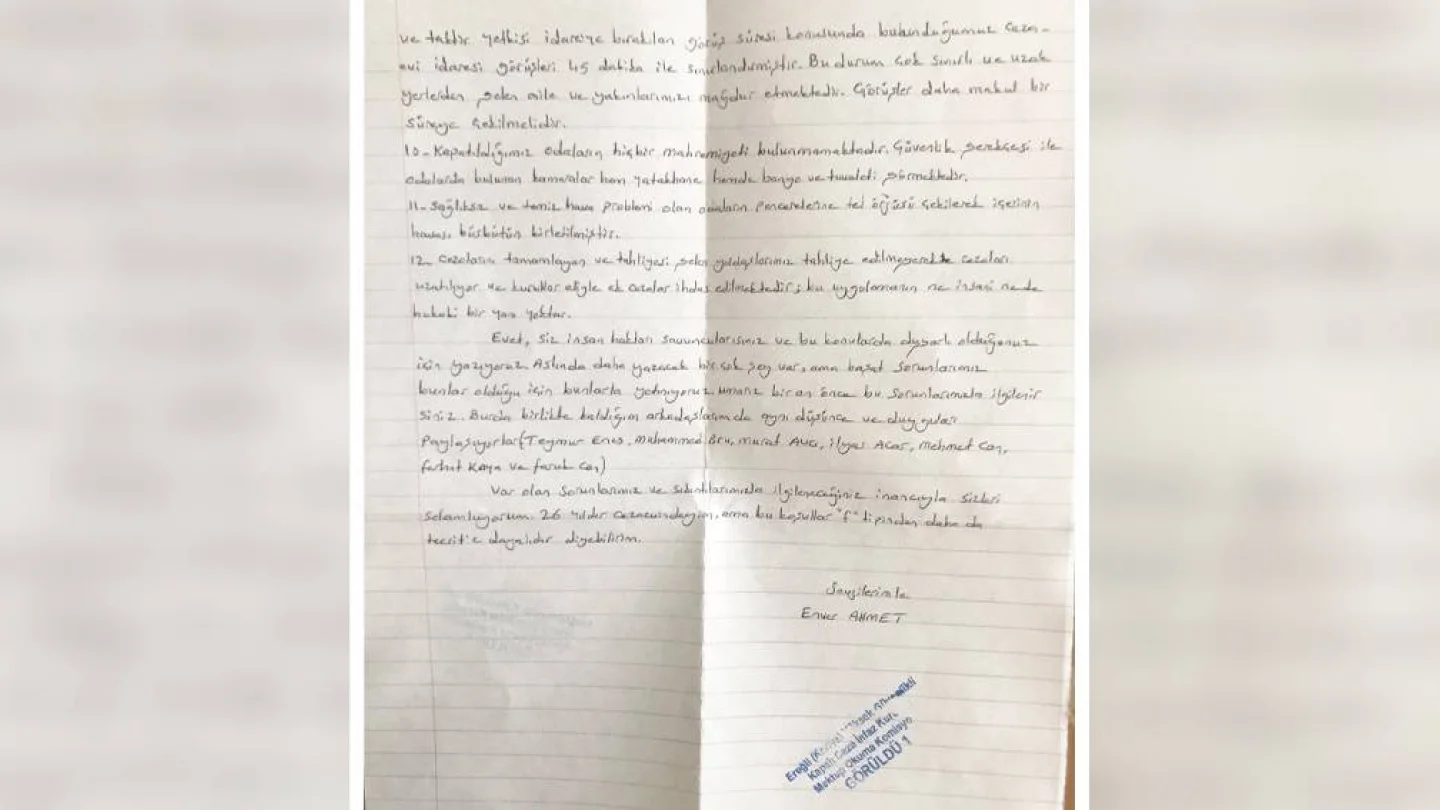 ve takdir yetkisi idareye bırakılan görüş süresi konusunda bulunduğumuz ceza-
evi idaresi görüşleri 45 dakika ile sınırlandırmıştır. Bu durum çok sınırlı ve uzak
yerlerden gelen aile ve yakınlarımızı mağdur etmektedir. Görüşler daha makul bir
süreye çekilmelidir.
10- Kapatıldığımız odaların hiçbir mahremiyeti bulunmamaktadır. Güvenlik gerekçesi ile
odalarda bulunan kameralar hem yatakhane hemde banyo ve tuvaleti görmektedir.
11- Sağlıksız ve temiz hava problemi olan odaların pencerelerine tel örgüsü çekilerek içerinin
havası büsbütün kirletilmiştir.
12- Cezalarını tamamlayan ve tahliyesi gelen yoldaşlarımız tahliye edilmeyerekte cezaları
uzatılıyor ve kurullar eliyle ek cezalar ihdas edilmektedir; bu uygulamanın ne insani nede
hukuki bir yanı yoktur.
Evet, siz insan hakları savunucularısınız ve bu konularda duyarlı olduğunuz
için yazıyoruz. Aslında daha yazacak bir çok şey var, ama başat sorunlarımız
bunlar olduğu için bunlarla yetiniyoruz umarız bir an önce bu sorunlarımızla ilgilenir
siniz. Burda birlikte kaldığım arkadaşlarımda aynı düşünce ve duyguları
Paylaşıyorlar (Teymur Enes, Muhammed, Murat Avcı, İlyas Acar, Mehmet Can,
Ferhat Kaya ve Faruk Can)
Var olan sorunlarımız ve sıkıntılarımızla ilgileneceğiniz inancıyla sizleri
selamlıyorum. 26 yıldır cezaevindeyim, ama bu koşullar "F" tipinden daha da
tecrit'e dayalıdır diyebilirim.
Saygılarımla
Enver AHMET
Ereğli (Konya) Yüksek Güvenlikli
Kapalı Ceza İnfaz Kur.
Mektup Okuma Komisyo
GÖRÜLDÜ 1